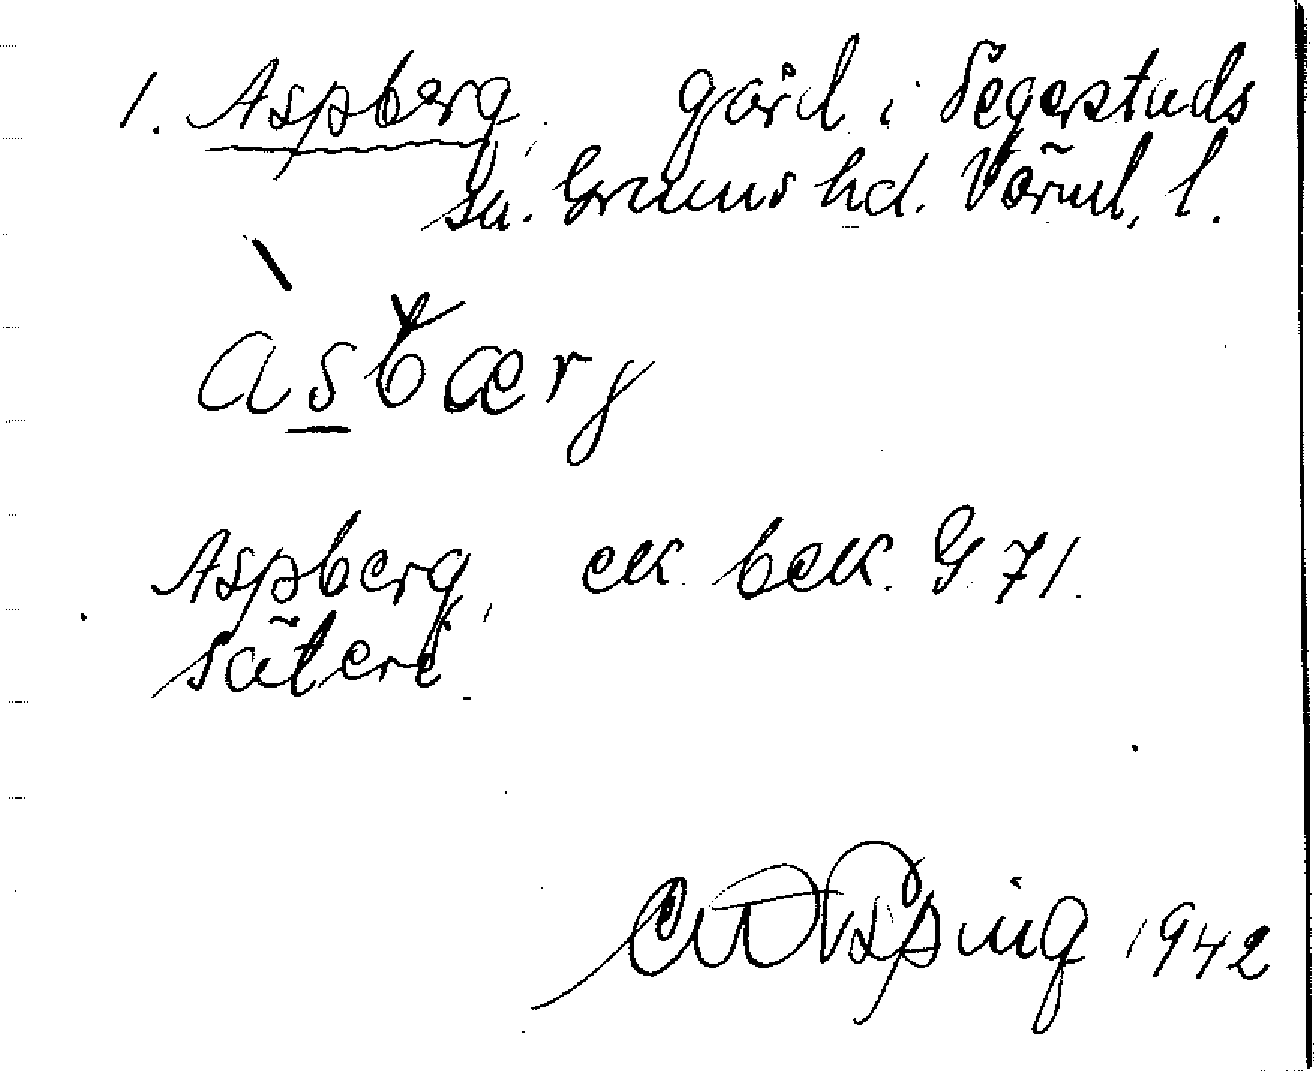 1. Aspberg, gård i Segerstads
sn. Grums hd. Värml. l.
àsbærj
Aspberg, ek. bek. G 71.
säteri
1942